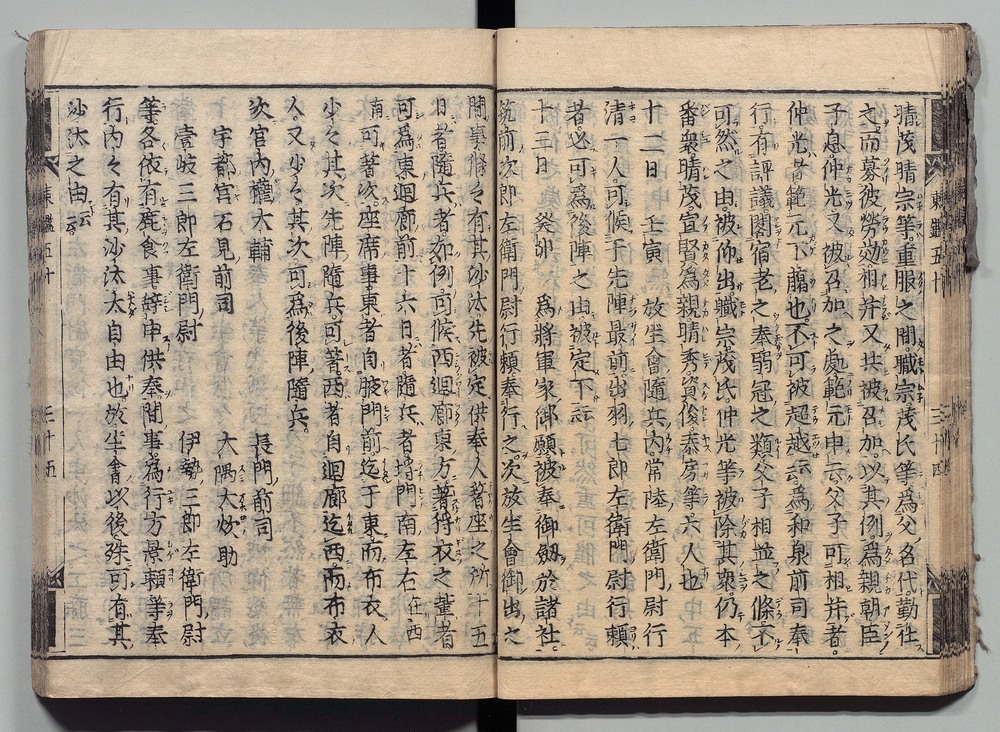 晴茂晴宗等重服之間職宗茂氏等為父名代勤仕
之而募彼勞効相并又共被召加以其例為親朝臣
子息仲光又被召加之處範元申云父子可相并者
仲光者範元下﨟也不可被超越云為和泉前司奉
行有評議閣宿老之奉弱冠之類父子相並之條不
可然之由被仰出職宗茂氏仲光等被除其衆仍本
番衆晴茂宣賢為親晴秀資俊泰房等六人也
十二日 壬寅 放生會隨兵内常陸左衛門尉行
清一人可候于先陣最前出羽七郎左衛門尉行頼
者必可為後陣之由被定下云云
十三日 癸卯 為將軍家御願被奉御劔於諸社
筑前次郎左衛門尉行頼奉行之次放生會御出之
東鑑五十 三十四
間事條々有其沙汰先被定供奉人著座之所十五
日者隨兵者如例可候西迴廊東方著狩衣之輩者
可為東迴廊前十六日者隨兵者埒門南左右在西
南可著次座席事東者自腋門前迄于東而布衣人
少々其次先陣隨兵可著西者自迴廊迄西而布衣
人又少々其次可為後陣隨兵
次宮内權大輔 長門前司
宇都宮石見前司 大隅大炊助
壹岐三郎左衛門尉 伊勢三郎左衛門尉
等各依有鹿食事辭申供奉間事為行方景頼等奉
行内々有其沙汰太自由也放生會以後殊可有其
沙汰之由云云
東鑑五十 三十五